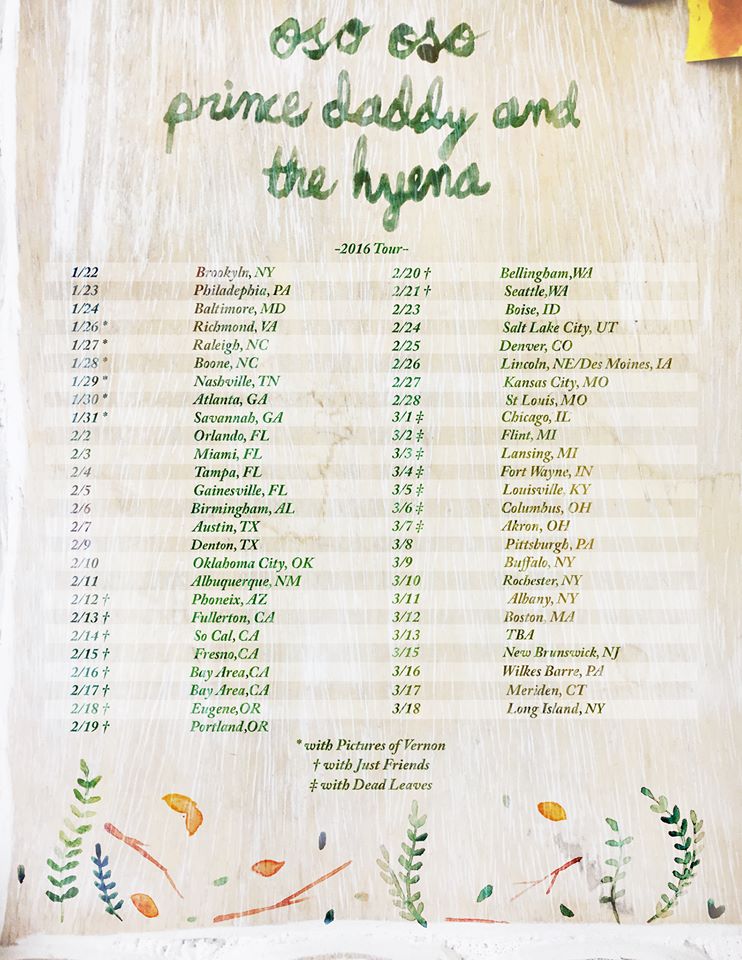 oso oso
prince daddy and
the hyena
-2016 Tour-
1/22 Brookyln, NY
1/23 Philadephia, PA
1/24 Baltimore, MD
1/26 * Richmond, VA
1/27 * Raleigh, NC
1/28 * Boone, NC
1/29 * Nashville, TN
1/30 * Atlanta, GA
1/31 * Savannah, GA
2/2 Orlando, FL
2/3 Miami, FL
2/4 Tampa, FL
2/5 Gainesville, FL
2/6 Birmingham, AL
2/7 Austin, TX
2/9 Denton, TX
2/10 Oklahoma City, OK
2/11 Albuquerque, NM
2/12 † Phoneix, AZ
2/13 † Fullerton, CA
2/14 † So Cal, CA
2/15 † Fresno,CA
2/16 † Bay Area,CA
2/17 † Bay Area,CA
2/18 † Eugene,OR
2/19 † Portland,OR
2/20 † Bellingham,WA
2/21 † Seattle,WA
2/23 Boise, ID
2/24 Salt Lake City, UT
2/25 Denver, CO
2/26 Lincoln, NE/Des Moines, IA
2/27 Kansas City, MO
2/28 St Louis, MO
3/1 ‡ Chicago, IL
3/2 ‡ Flint, MI
3/3 ‡ Lansing, MI
3/4 ‡ Fort Wayne, IN
3/5 ‡ Louisville, KY
3/6 ‡ Columbus, OH
3/7 ‡ Akron, OH
3/8 Pittsburgh, PA
3/9 Buffalo, NY
3/10 Rochester, NY
3/11 Albany, NY
3/12 Boston, MA
3/13 TBA
3/15 New Brunswick, NJ
3/16 Wilkes Barre, PA
3/17 Meriden, CT
3/18 Long Island, NY
* with Pictures of Vernon
† with Just Friends
‡ with Dead Leaves